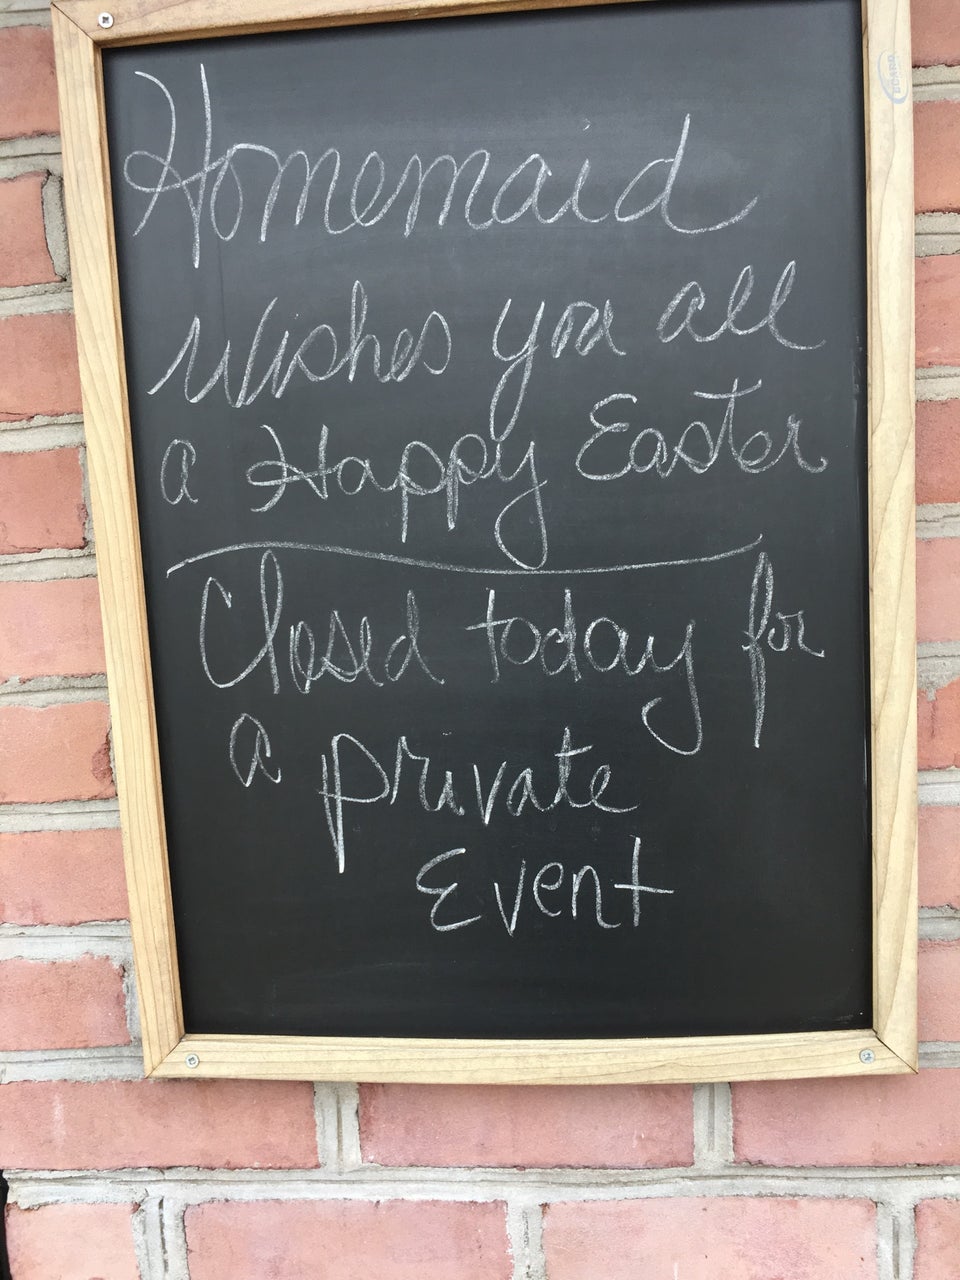 Homemaid
Wishes you all
a Happy Easter
Closed today for
a private
Event
BOARD